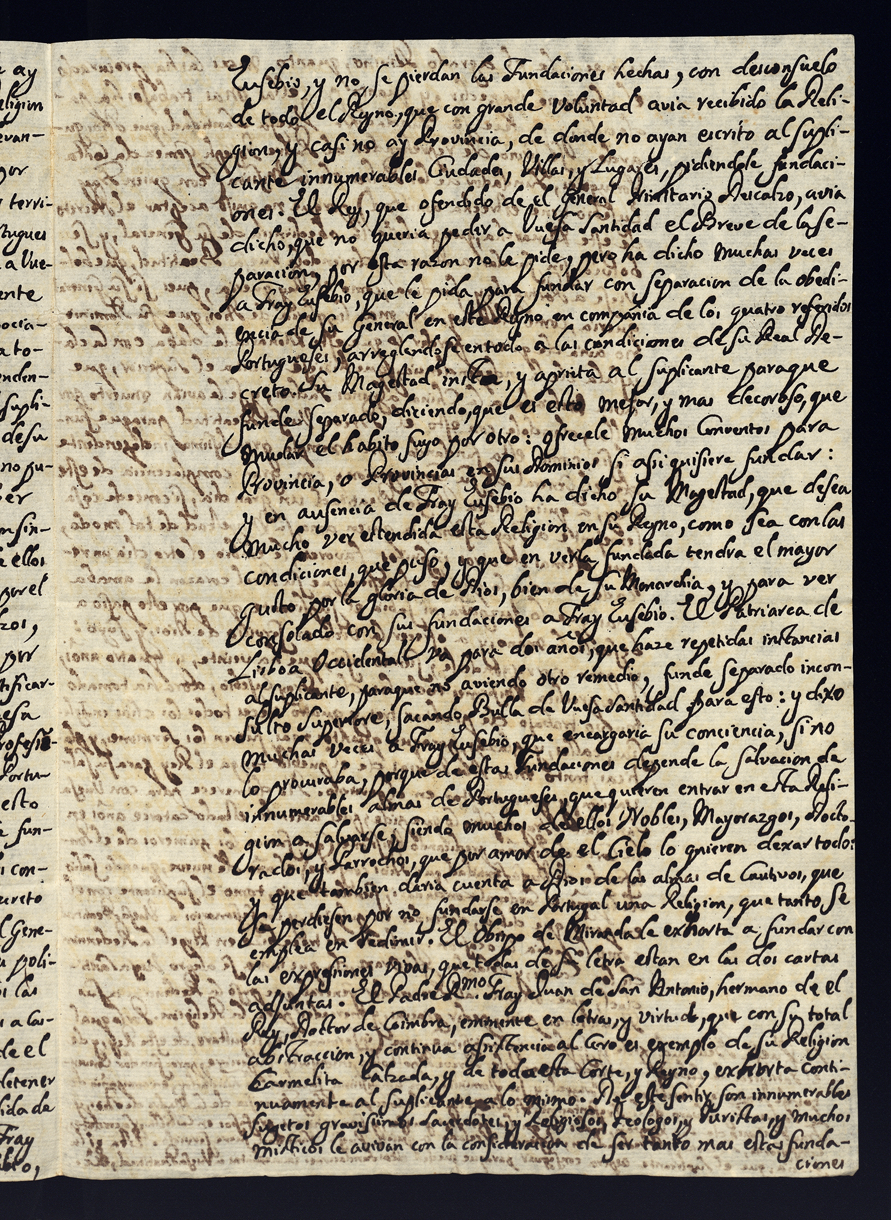 Eusebio, y no se pierdan las Fundaciones hechas, con desconsuelo
de todo el Reyno, que con grande voluntad avia recibido la Reli-
gion, y casi no ay Provincia, de donde no ayan escrito al supli-
cante innumerables Ciudades, Villas, y Lugares, pidiendole fundaci-
ones. El Rey, que ofendido de el General Trinitario Descalzo, avia
dicho, que no queria pedir a Vuesa Santidad el Breve de la se-
paracion, por esta razon no le pide, pero ha dicho muchas veces
a Fray Eusebio, que le pida para fundar con separacion de la obedi-
encia de su General en este Reyno en compañia de los quatro referidos
Portugueses, arreglendose en todo a las condiciones de su Real De-
creto. Su Magestad insta, y aprieta al suplicante paraque
funde separado, diciendo, que es esto mejor, y mas decoroso, que
mudar el habito suyo por otro: ofrecele muchos Conventos para
Provincia, o Provincias en sus Dominios si asi quisiere fundar:
y en ausencia de Fray Eusebio ha dicho su Magestad, que desea
mucho ver estendida esta Religion en su Reyno, como sea con las
condiciones, que puso, y que en verla fundada tendra el mayor
gusto por la gloria de Dios, bien de su Monarchia, y para ver
consolado con sus fundaciones a Fray Eusebio. El Patriarca de
Lisboa Occidental va para dos años, que haze repetidas instancias
al suplicante, paraque no aviendo otro remedio, funde separado incon-
sulto Superiore, sacando Bulla de Vuesa Santidad para esto: y dixo
muchas veces a Fray Eusebio, que encargaria su conciencia, si no
lo procuraba, porque de estas Fundaciones depende la salvacion de
innumerables almas de Portugueses, que quieren entrar en esta Reli-
gion a salvarse, siendo muchos de ellos Nobles, Mayorazgos, Docto-
rados, y Parrochos, que por amor de el Cielo lo quieren dexar todo:
y que tambien daria cuenta a Dios de las almas de Cautivos, que
se perdiesen por no fundarse en Portugal una Religion, que tanto se
emplea en redimir. El Obispo de Miranda le exhorta a fundar con
las expresiones vivas, que todas de su letra estan en las dos cartas
adjuntas. El Padre Rmo. Fray Juan de San Antonio, hermano de el
Rey, Doctor de Coimbra, eminente en letras, y virtud, que con su total
abstraccion, y continua asistencia al Coro es exemplo de su Religion
Carmelita Calzada, y de toda esta Corte, y Reyno, exhorta conti-
nuamente al suplicante a lo mismo. De este sentir son innumerables
sugetos gravisimos Sacerdotes, y Religiosos, Teologos, y Juristas, y muchos
misticos le avivan con la consideracion de ser tanto mas estas funda-
ciones